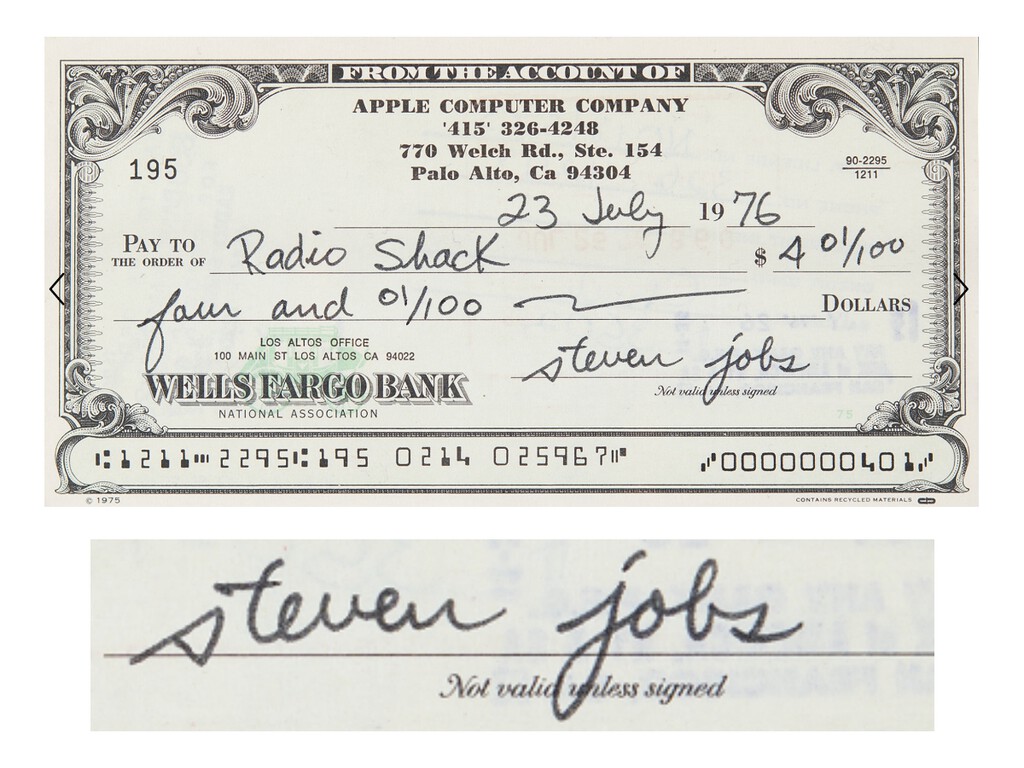 FROM THE ACCOUNT OF
APPLE COMPUTER COMPANY
'415' 326-4248
770 Welch Rd., Ste. 154
Palo Alto, Ca 94304
195
90-2295
1211
23 July 1976
PAY TO
THE ORDER OF Radio Shack $ 4 01/100
four and 01/100 DOLLARS
LOS ALTOS OFFICE
100 MAIN ST LOS ALTOS CA 94022
WELLS FARGO BANK
NATIONAL ASSOCIATION
steven jobs
Not valid unless signed
75
⑆1211⑉2295⑆195 0214 025967⑈ ⑇0000000401⑇
© 1975
CONTAINS RECYCLED MATERIALS
steven jobs
Not valid unless signed